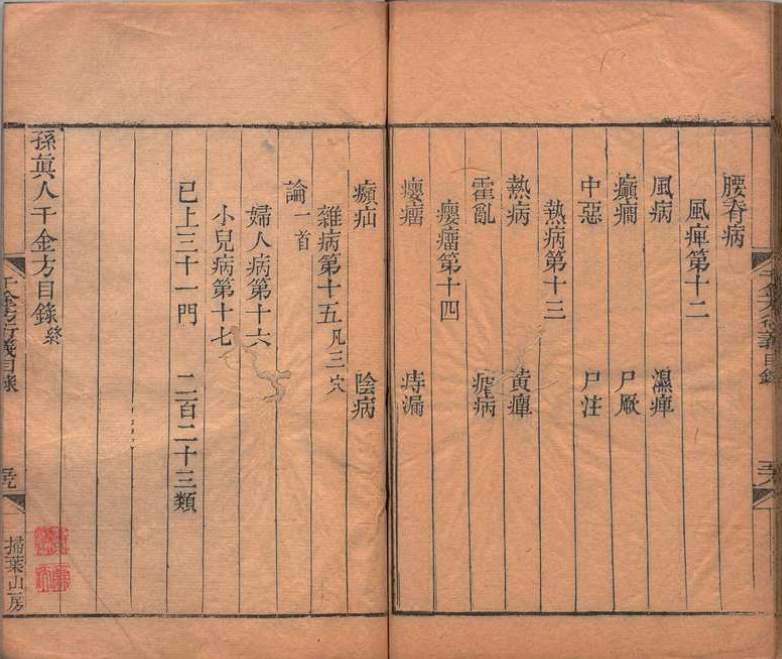 千金方衍義目錄
腰脊病
風痺第十二
風病 濕痺
癲癎 尸厥
中惡 尸注
熱病第十三
熱病 黃癉
霍亂 瘧病
癭瘤第十四
癭瘤 痔漏
㿗疝 陰病
雜病第十五凡三穴
論一首
婦人病第十六
小兒病第十七
已上三十一門 二百二十三類
孫眞人千金方目錄終
千金方衍義目錄
掃葉山房